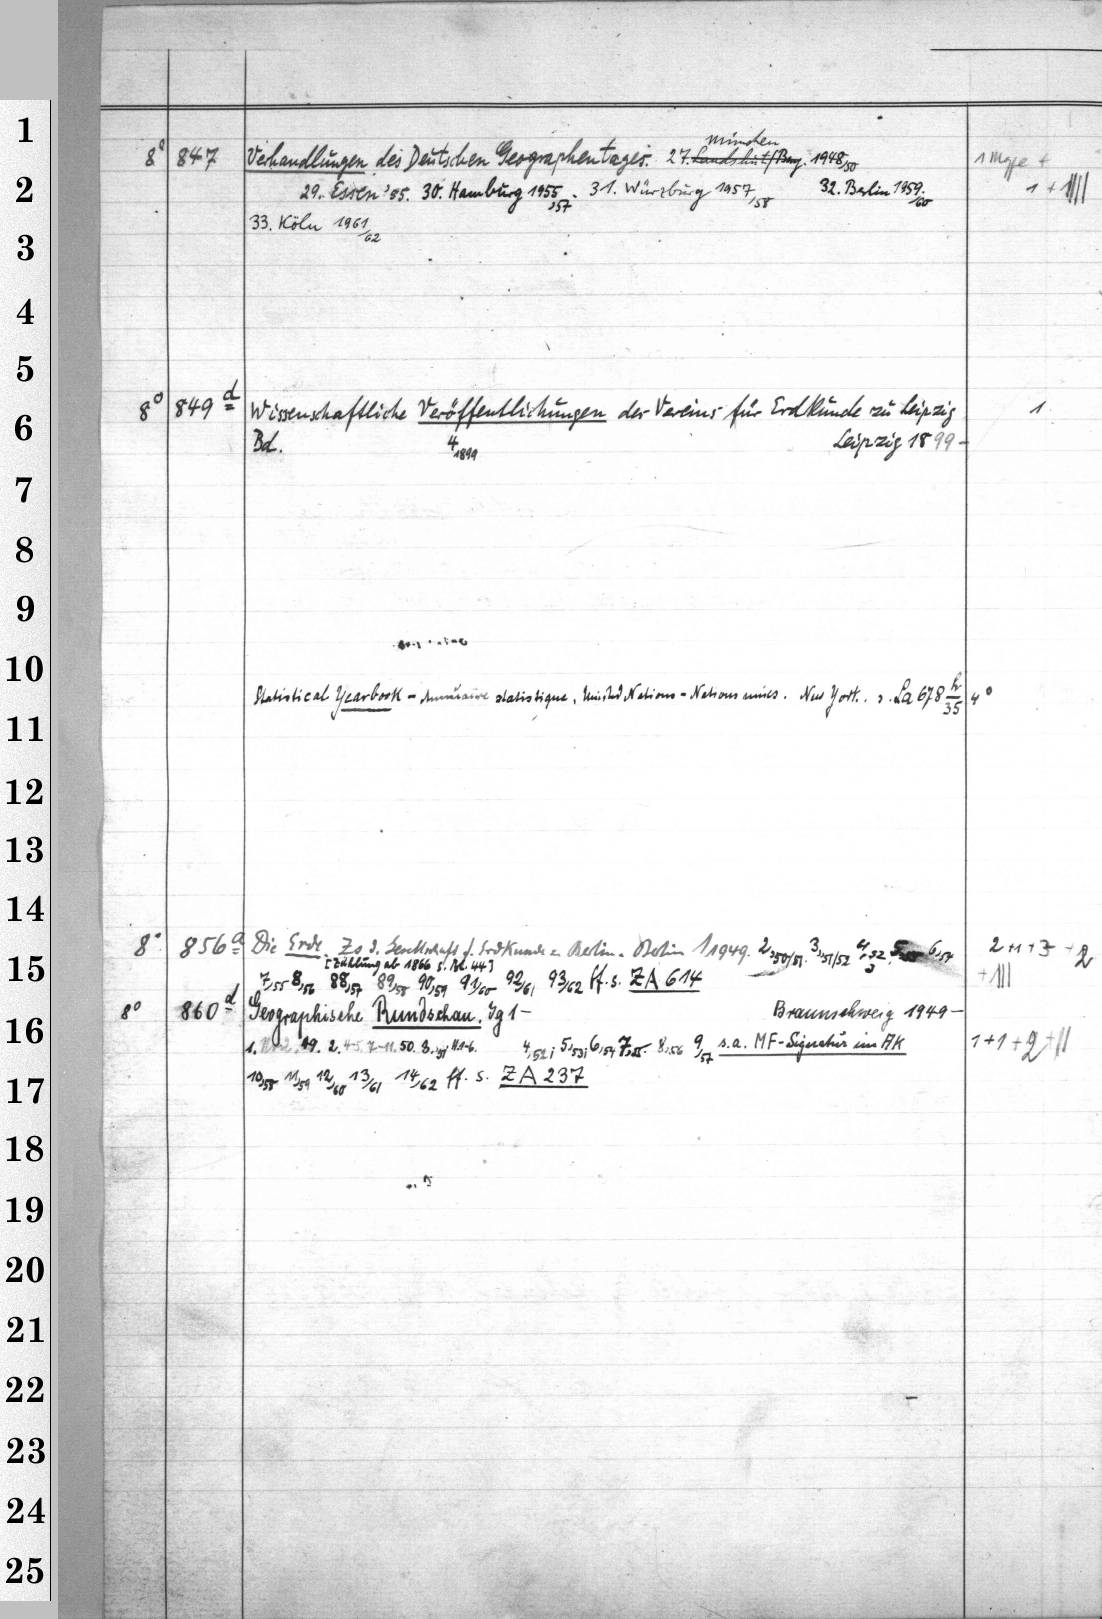 1
München
8° 847 Verhandlungen des Deutschen Geographentages. 27. Landshut/Bay. 1948/50 1 Mppe +
2
29. Essen '55. 30. Hamburg 1955,'57. 31. Würzburg 1957,58 32. Berlin 1959/60 1 + 1||||
33. Köln 1961/62
3
4
5
8° 849 d Wissenschaftliche Veröffentlichungen des Vereins für Erdkunde zu Leipzig 1
6
Bd. 4,1899 Leipzig 1899-
7
8
9
10
Statistical Yearbook - Annuaire statistique, United Nations - Nations unies. New York. s. La 678 h/35 4°
11
12
13
14
8° 856 a Die Erde. Zs d. Gesellschaft f. Erdkunde z. Berlin. Berlin 1 1949. 2,50/51. 3,51/52 4,52 5 6,54 2+1+3 + 2
[Zählung ab 1866 s. Bd. 44]
15
7,55 8,56 88,57 89,58 90,59 91/60 92/61 93/62 ff. s. ZA 614 +|||
8° 860 d Geographische Rundschau. Jg 1- Braunschweig 1949-
16
1. 49. 2. 4-5. 7-11. 50. 3. 51 4,52; 5,53; 6,54 7,55. 8,56 9,57 s.a. MF-Signatur im AK 1+1+2+||
17
10,58 11,59 12,60 13/61 14/62 ff. s. ZA 237
18
19
20
21
22
23
24
25